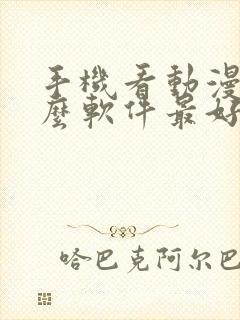 手機看動漫
麼軟件最好
哈巴克阿尔巴